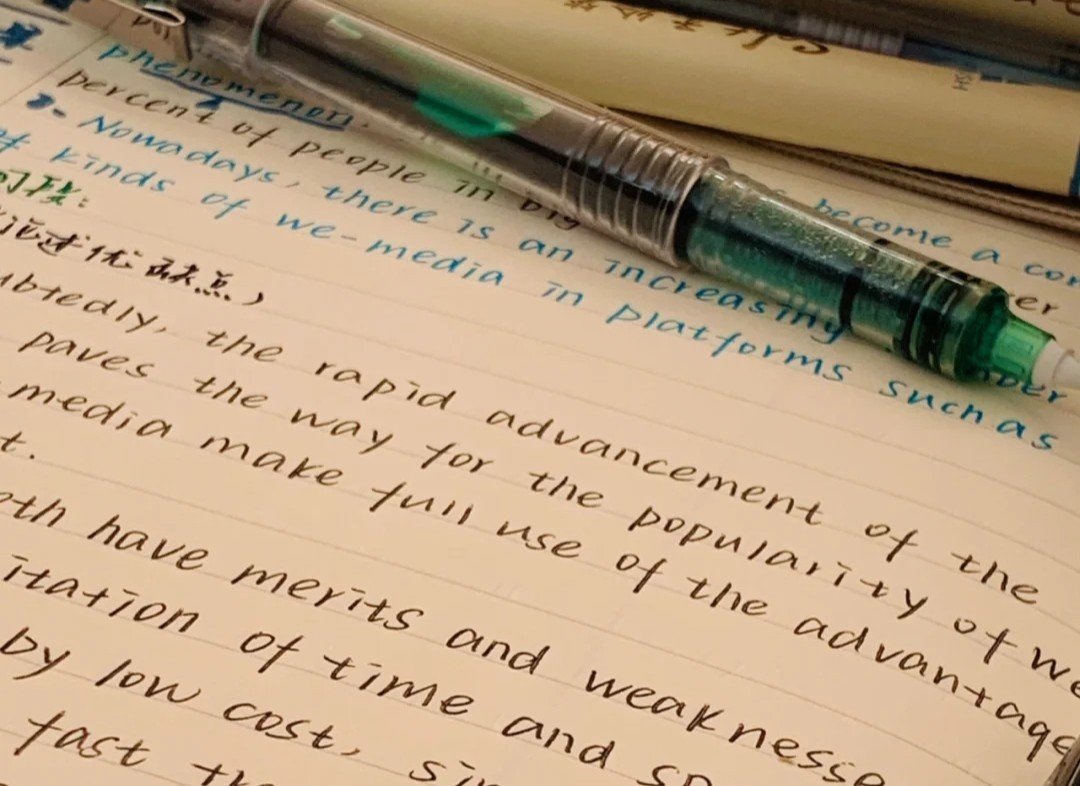 phenomenon.
percent of people in big
3. Nowadays, there is an increasing
kinds of we-media in platforms such as
become a
述优缺点,
the rapid advancement of the
paves the way for the popularity of
media make full use of the advantage
t.
have merits and weaknesse
itation of time and
by low cost,
fast